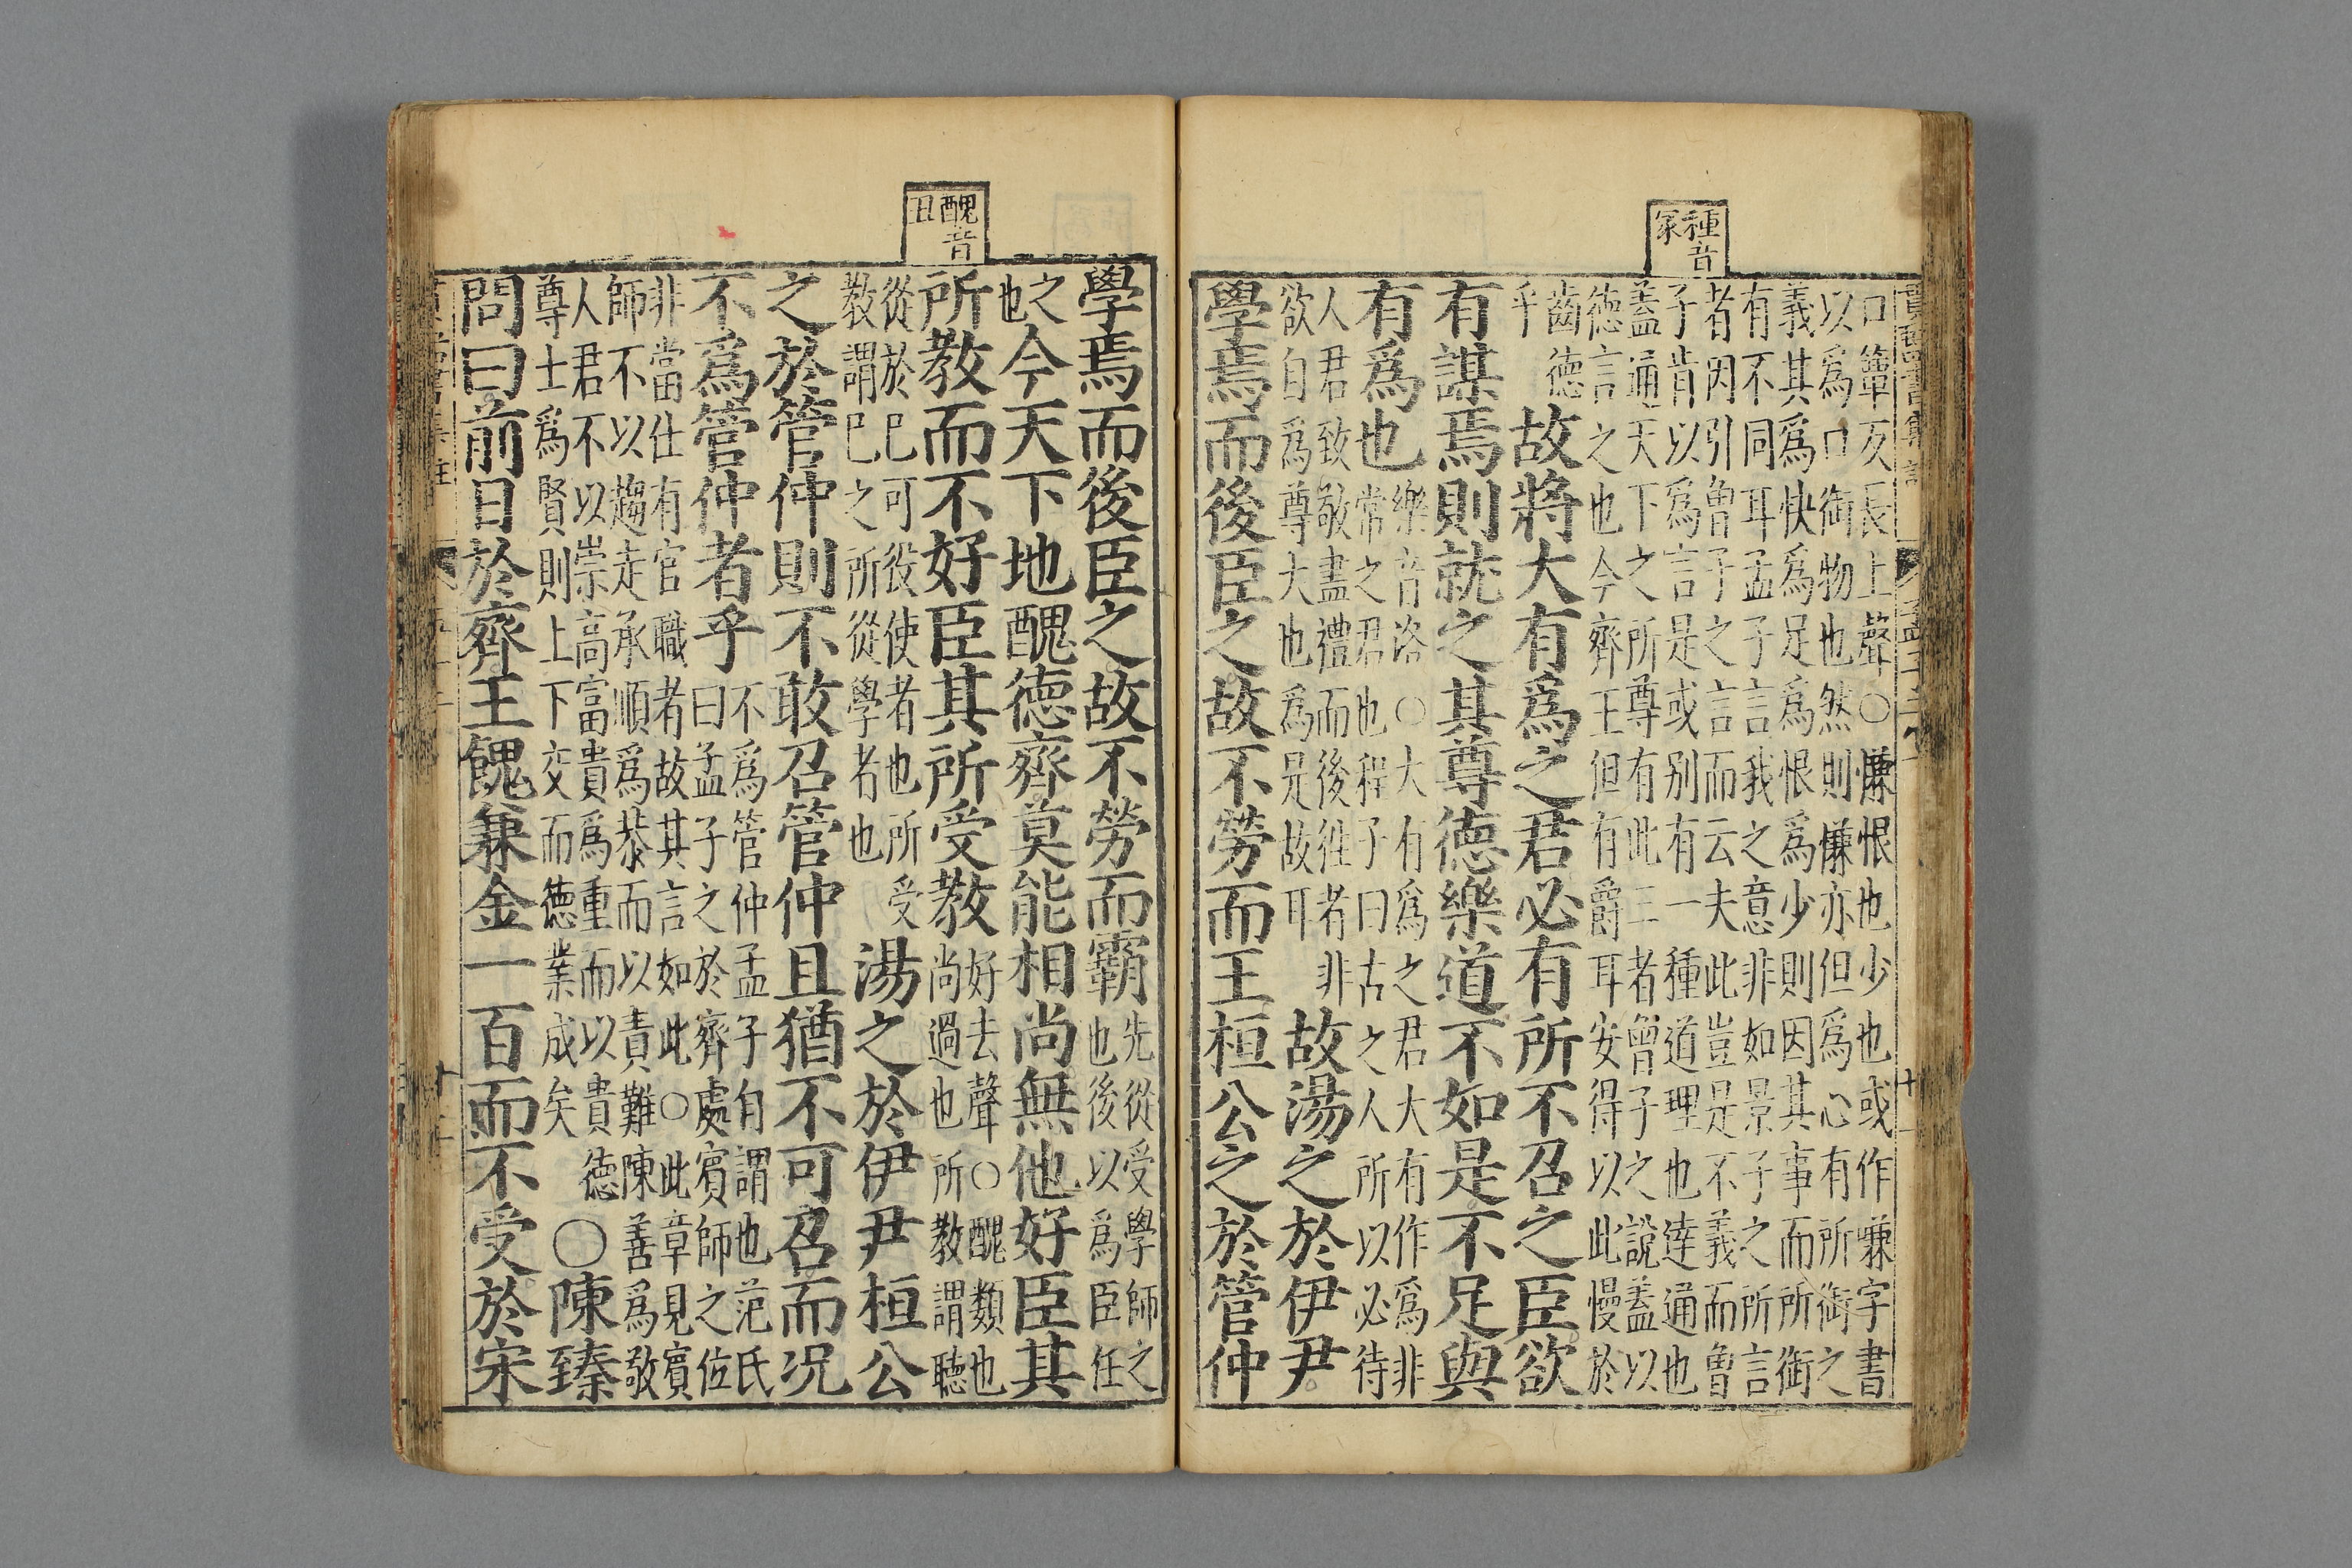 種音
冢
口簟反長上聲○慊恨也少也或作嗛字書
以爲口銜物也然則慊亦但爲心有所銜之
義其爲快爲足爲恨爲少則因其事而所銜
有不同耳孟子言我之意非如景子之所言
者因引曾子之言而云夫此豈是不義而曾
子肯以爲言是或別有一種道理也達通也
蓋通天下之所尊有此三者曾子之說蓋以
德言之也今齊王但有爵耳安得以此慢於
齒德
乎
故將大有爲之君必有所不召之臣欲
有謀焉則就之其尊德樂道不如是不足與
有爲也
樂音洛○大有爲之君大有作爲非
常之君也程子曰古之人所以必待
人君致敬盡禮而後徃者非
欲自爲尊大也爲是故耳
故湯之於伊尹
學焉而後臣之故不勞而王桓公之於管仲
醜音
丑
學焉而後臣之故不勞而霸
先從受學師之
也後以爲臣任
之
也
今天下地醜德齊莫能相尚無他好臣其
所教而不好臣其所受教
好去聲○醜類也
尚過也所教謂聽
從於已可役使者也所受
教謂已之所從學者也
湯之於伊尹桓公
之於管仲則不敢召管仲且猶不可召而况
不爲管仲者乎
不爲管仲孟子自謂也范氏
曰孟子之於齊處賓師之位
非當仕有官職者故其言如此○此章見賓
師不以趨走承順爲恭而以責難陳善爲敬
人君不以崇高富貴爲重而以貴德
尊士爲賢則上下交而德業成矣
○陳臻
問曰前日於齊王餽兼金一百而不受於宋